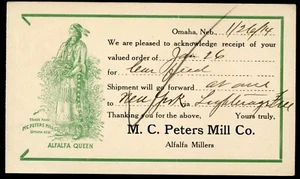 Omaha, Neb., 1/26/14
We are pleased to acknowledge receipt of your
valued order of Jan 26
for Car Feed
Shipment will go forward at once
to New York via Lightning Free
Thanking you for the above, Yours truly,
M. C. Peters Mill Co.
Alfalfa Millers
TRADE MARK
M.C. PETERS MILL
OMAHA NEB
ALFALFA QUEEN